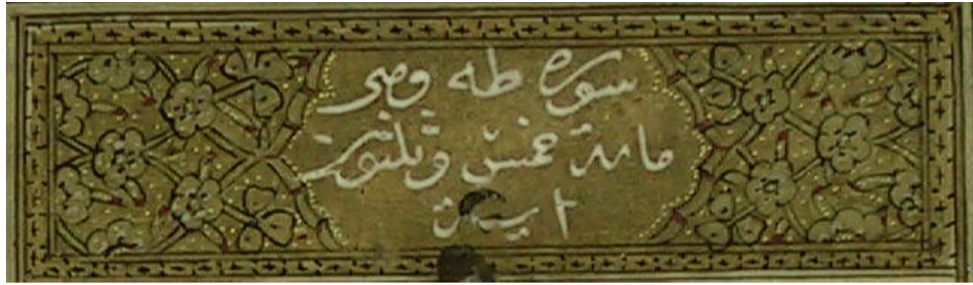 سورة طه وهى
مائة خمس وثلثون
اية